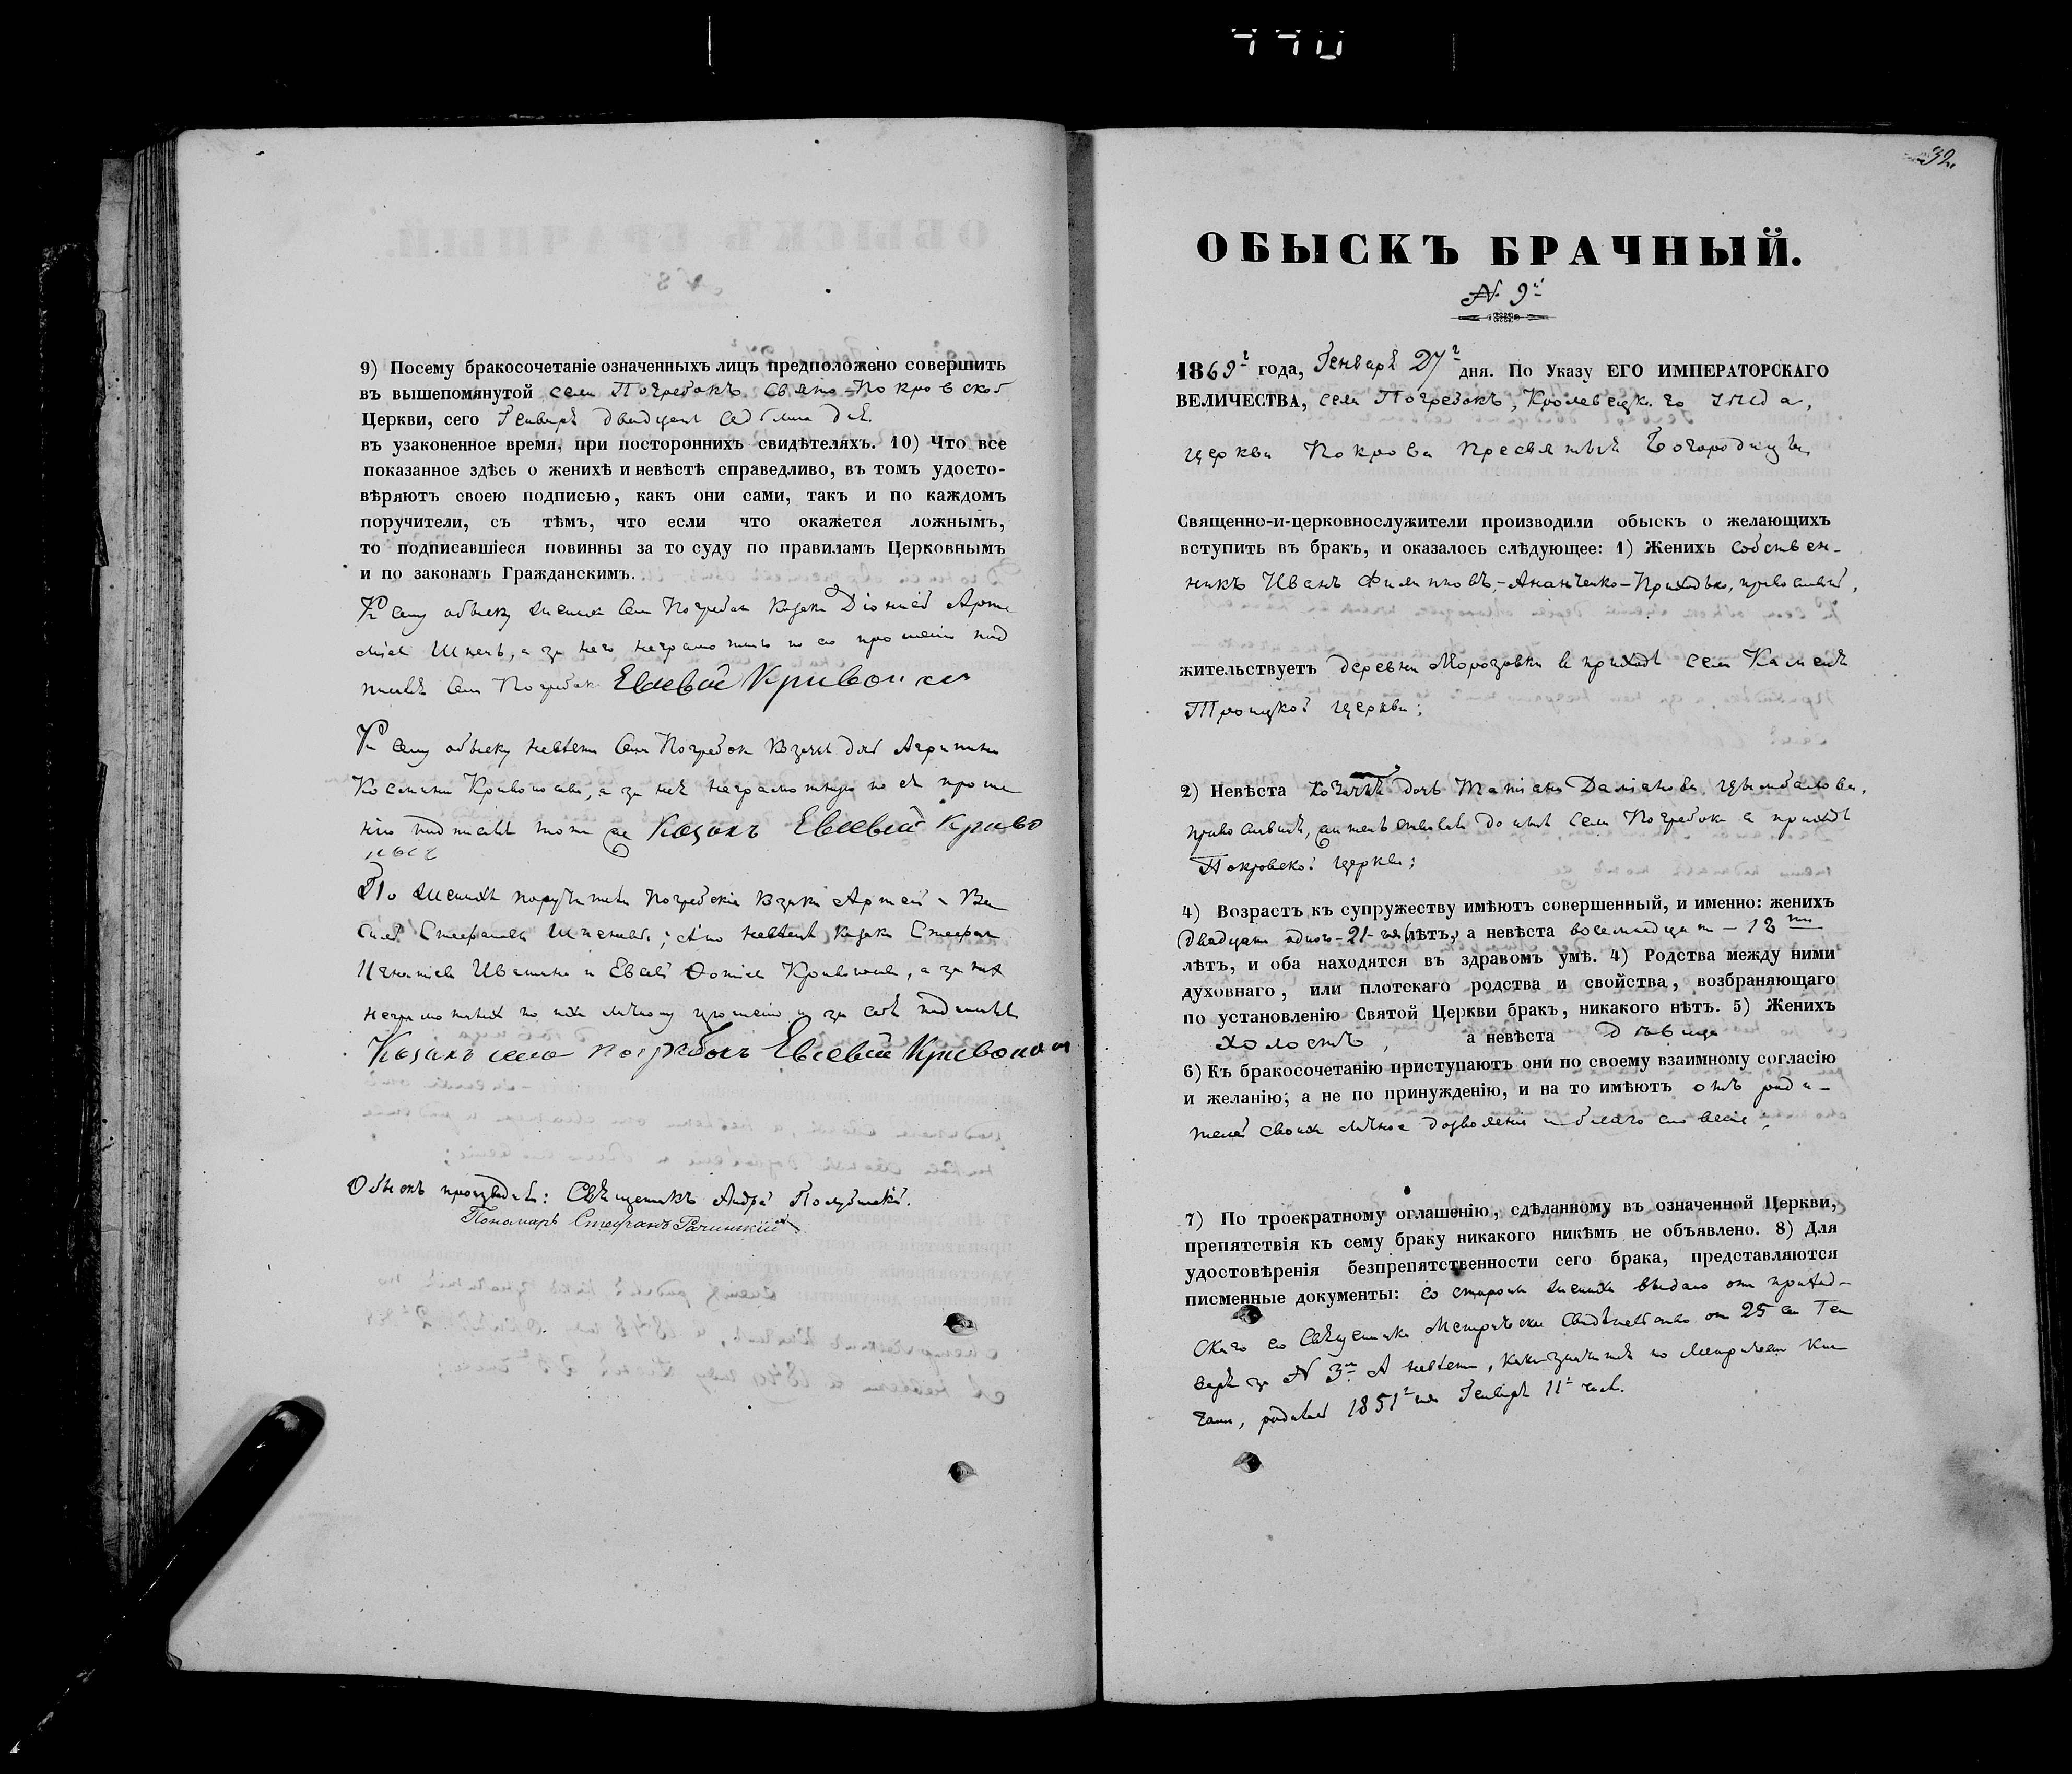 9) Посему бракосочетаніе означенныхъ лицъ предположено совершить
въ вышепомянутой села Погребокъ Свято-Покровской
Церкви, сего Генваря двадцать седьмаго дня.
въ узаконенное время, при постороннихъ свидѣтеляхъ. 10) Что все
показанное здѣсь о женихѣ и невѣстѣ справедливо, въ томъ удосто-
вѣряютъ своею подписью, какъ они сами, такъ и по каждомъ
поручители, съ тѣмъ, что если что окажется ложнымъ,
то подписавшіеся повинны за то суду по правиламъ Церковнымъ
и по законамъ Гражданскимъ.
К сему обыску женихъ села Погребок козакъ Діонисій
а за него неграмотнаго по его прошенію под
писалъ села Погребок Евсевій Кривонос
К сему обыску невѣста села Погребок козачья дочь Агрипина
Косьмина Кривоносова, а за неѣ неграмотную по еѣ проше
нію подписалъ тотъ же Козакъ Евсевій Криво
нос
По женихѣ поручители погребскіе козаки и Ва
Стефанов а по невѣстѣ козаки Стефан
Игнатіев и Евсевій Фотіев Кривонос, а за них
неграмотных по их личному прошенію и за себя подписалъ
Козакъ села погрѣбокъ Евсевій Кривонос
Обыскъ производили: Священникъ Андрей
Пономарь Стефанъ Рачинскій
32.
ОБЫСКЪ БРАЧНЫЙ.
№ 9й
1869г года, Генваря 27г дня. По Указу ЕГО ИМПЕРАТОРСКАГО
ВЕЛИЧЕСТВА, села Погребокъ, Кролевецкаго уѣзда,
церкви Покрова Пресвятыя Богородицы
Священно-и-церковнослужители производили обыскъ о желающихъ
вступить въ бракъ, и оказалось слѣдующее: 1) Женихъ собствен-
никъ Иванъ Филиповъ-Ананченко-Приходько, православный,
жительствуетъ деревни Морозовки в приходѣ села Каменя
Троицкой церкви;
2) Невѣста козачья дочь Татіана Даміанова Цымбалова,
православная, жительствовала до нынѣ села Погребок в приходѣ
Покровской церкви;
4) Возрастъ къ супружеству имѣютъ совершенный, и именно: женихъ
двадцати одного-21-го лѣтъ, а невѣста восемнадцати-18ти
лѣтъ, и оба находятся въ здравомъ умѣ. 4) Родства между ними
духовнаго, или плотскаго родства и свойства, возбраняющаго
по установленію Святой Церкви бракъ, никакого нѣтъ. 5) Женихъ
холостъ, а невѣста дѣвица
6) Къ бракосочетанію приступаютъ они по своему взаимному согласію
и желанію; а не по принужденію, и на то имѣютъ отъ роди-
телей своихъ личное дозволеніе и благословеніе.
7) По троекратному оглашенію, сдѣланному въ означенной Церкви,
препятствія къ сему браку никакого никѣмъ не объявлено. 8) Для
удостовѣренія безпрепятственности сего брака, представляются
писменные документы: со стороны жениха выдано от приход-
скаго его священника Метрическое свидѣтельство от 25 сего Ген
варя за № 3м А невѣста, какъ значится по метрической кни
гѣ, родилась 1851г года Генваря 11г числ.